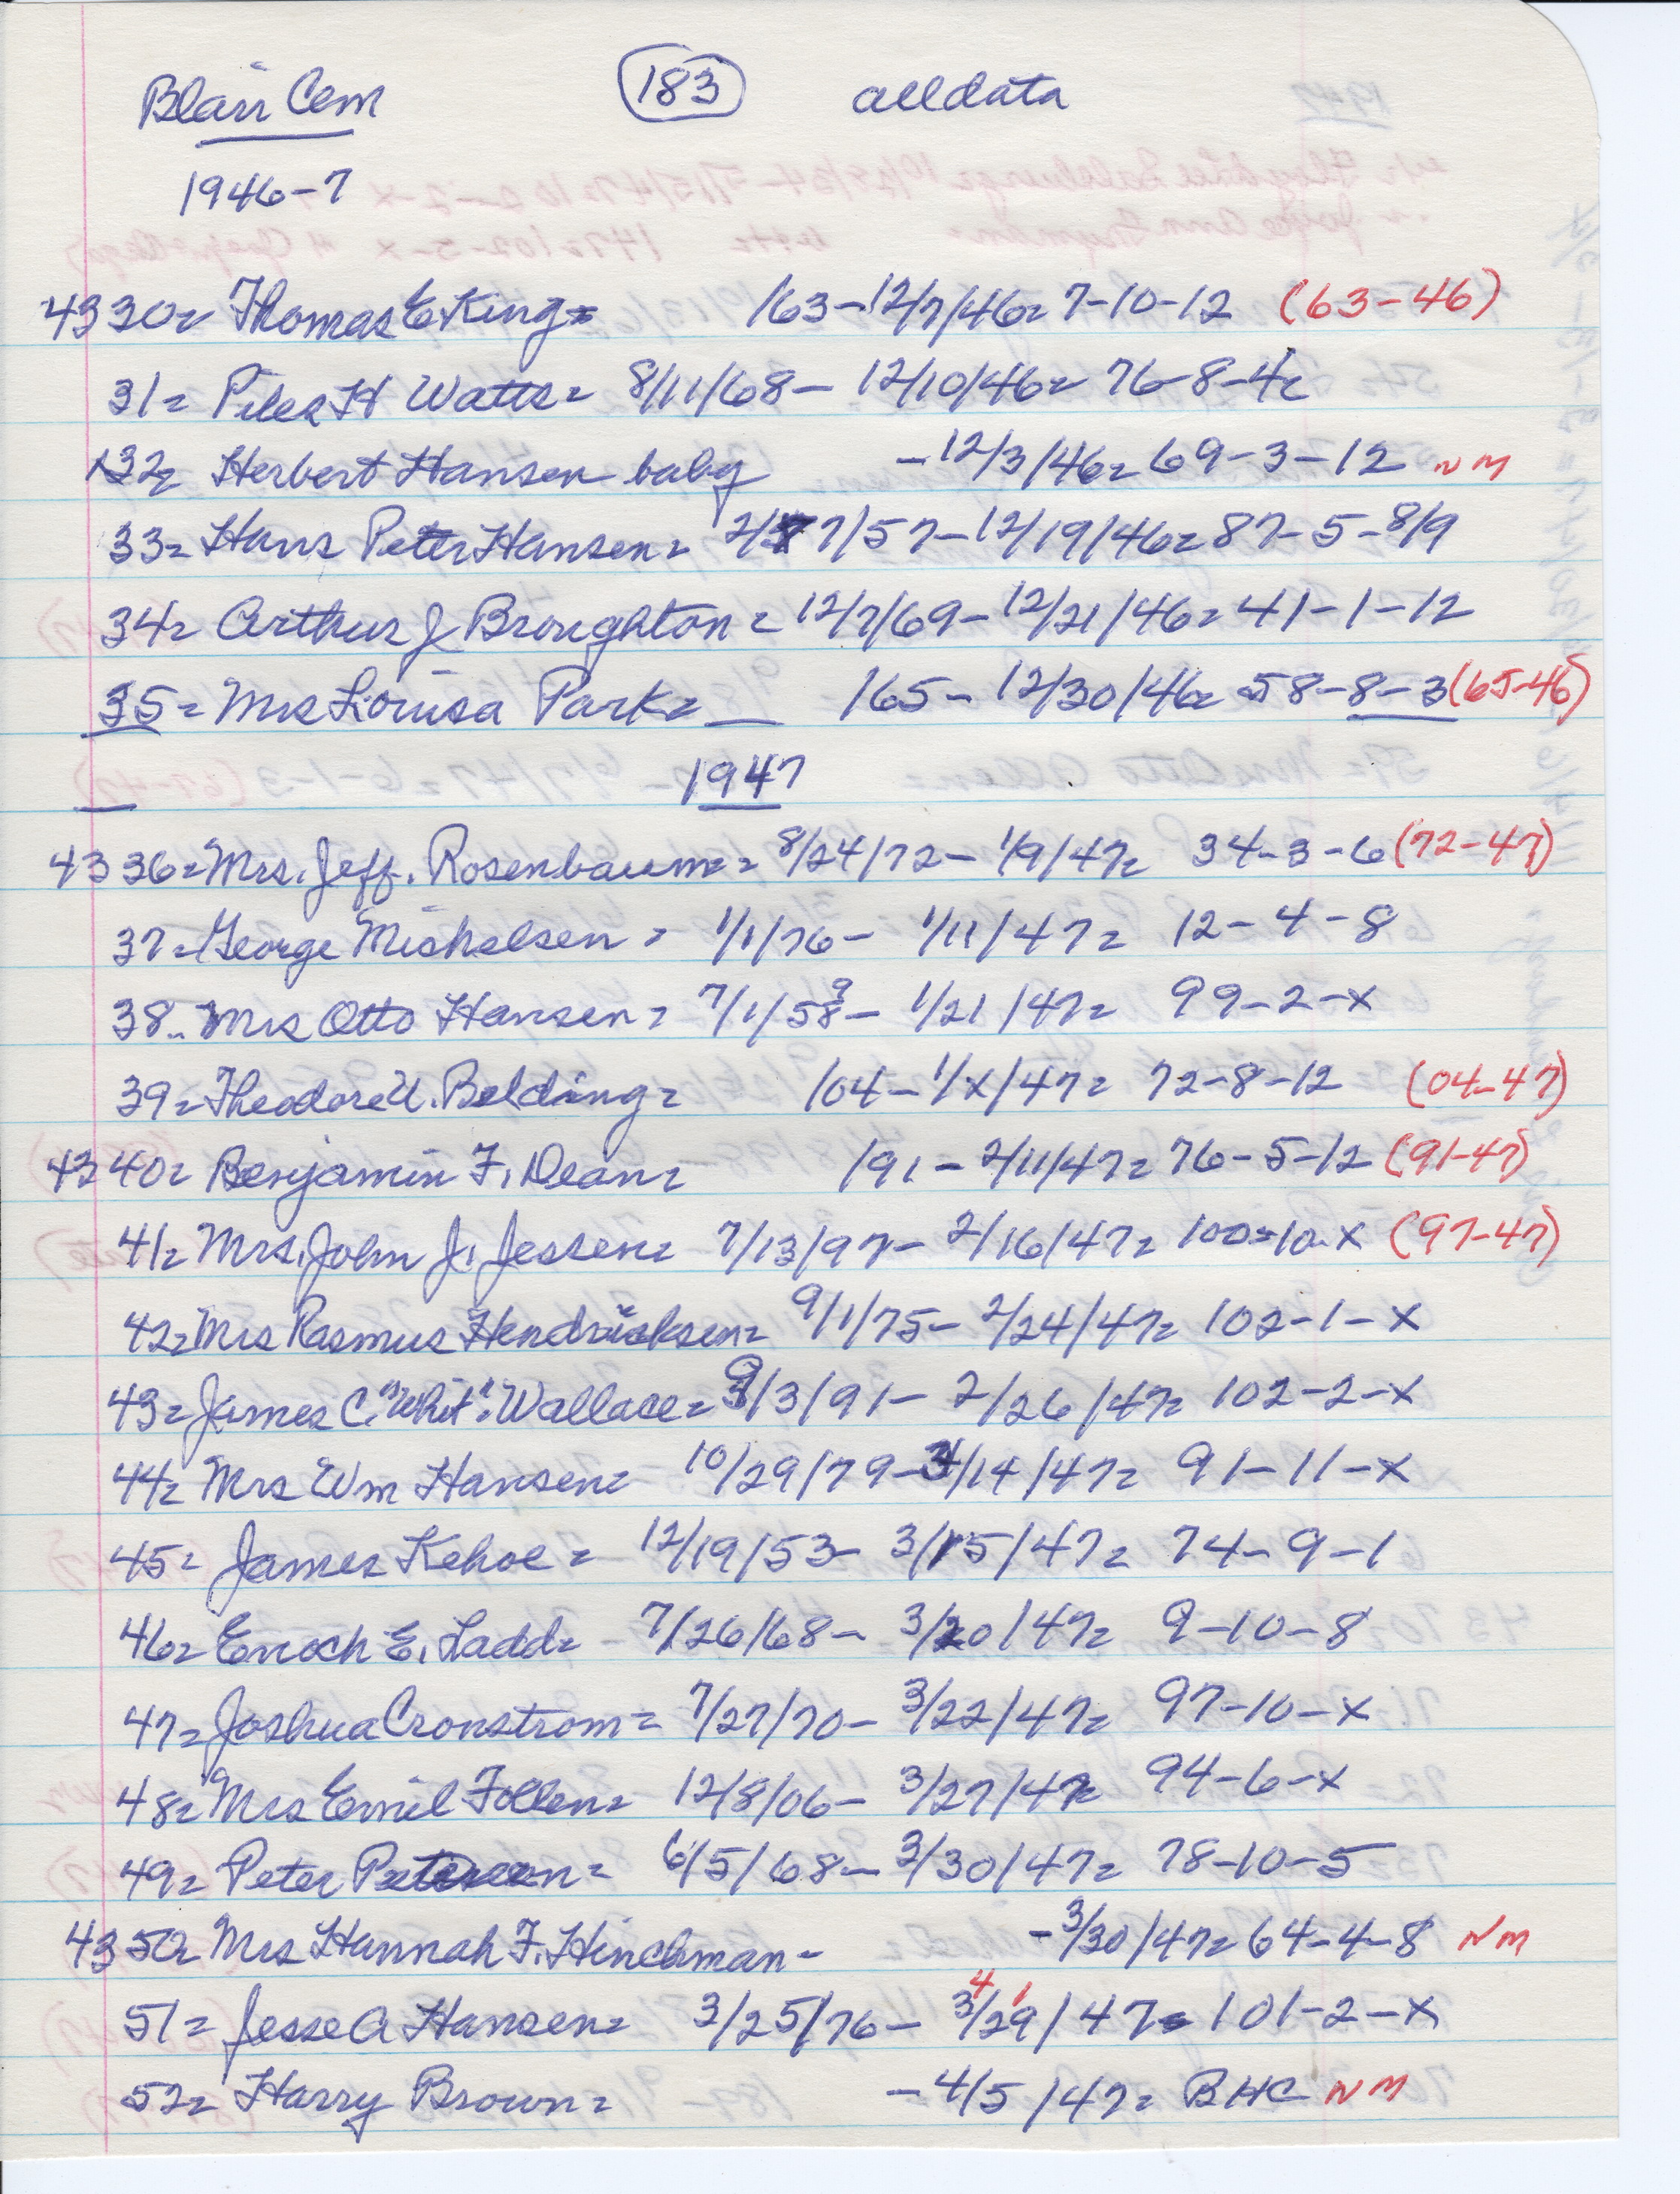 Blair Cem (183) alldata
1946-7
4330= Thomas E King= /63-12/7/46= 7-10-12 (63-46)
31= Piles H Watts= 8/11/68- 12/10/46= 76-8-4
32= Herbert Hansen baby -12/3/46= 69-3-12 NM
33= Hans Peter Hansen= 2/7/57-12/19/46= 87-5-8/9
34= Arthur J Broughton= 12/7/69-12/21/46= 41-1-12
35= Mrs Louisa Park= __ /65- 12/30/46= 58-8-3 (65-46)
1947
4336= Mrs. Jeff. Rosenbaum= 8/24/72- 1/9/47= 34-3-6 (72-47)
37= George Michelsen= 1/1/76- 1/11/47= 12-4-8
38.. Mrs Otto Hansen= 7/1/58 9- 1/21/47= 99-2-x
39= Theodore U. Belding= /04-1/x/47= 72-8-12 (04-47)
4340= Benjamin F. Dean= /91- 2/11/47= 76-5-12 (91-47)
41= Mrs. John J. Jessen= 7/13/97- 2/16/47= 100-10-x (97-47)
42= Mrs Rasmus Hendricksen= 9/1/75- 2/24/47= 102-1-x
43= James C. "Whit". Wallace= 9/3/91- 2/26/47= 102-2-x
44= Mrs Wm Hansen= 10/29/79- /14/47= 91-11-x
45= James Kehoe= 12/19/53- 3/15/47= 74-9-1
46= Enoch E. Ladd= 7/26/68- 3/20/47= 9-10-8
47= Joshua Cronstrom= 7/27/70- 3/22/47= 97-10-x
48= Mrs Emil Follen= 12/8/06- 3/27/47= 94-6-x
49= Peter Petersen= 6/5/68- 3/30/47= 78-10-5
4350= Mrs Hannah F. Hinchman- -3/30/47= 64-4-8 NM
4 1
51= Jesse A Hansen= 3/25/76- 3/29/47= 101-2-x
52= Harry Brown= -4/5/47= BHC NM